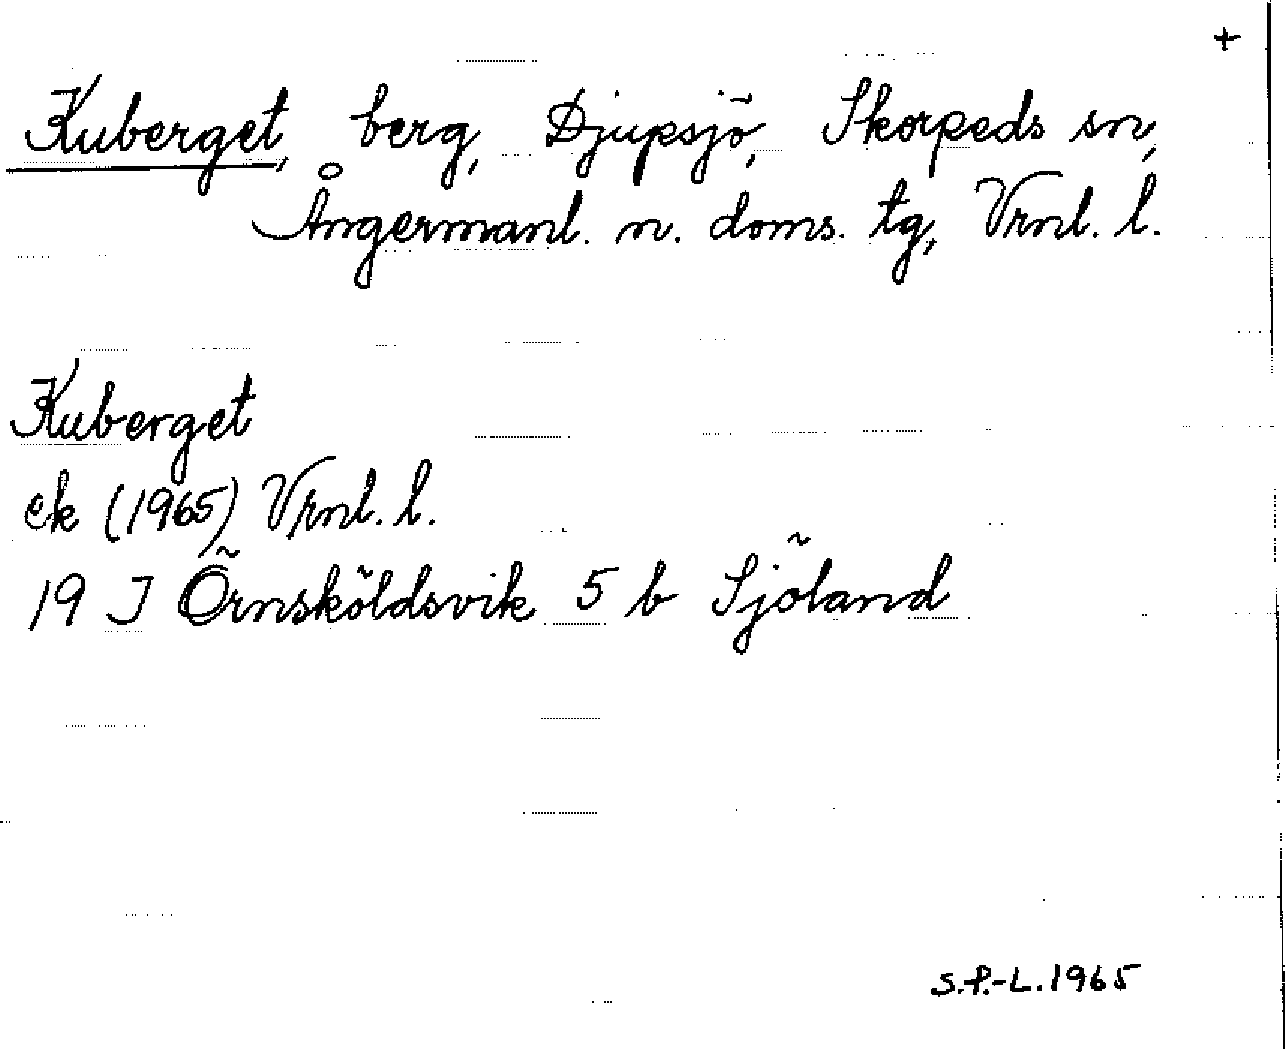 +
Kuberget, berg, Djupsjö, Skorpeds sn,
Ångermanl. n. doms. tg, Vrnl. l.
Kuberget
ek (1965) Vrnl. l.
19 J Örnsköldsvik 5 b Sjöland
S.P.-L. 1965